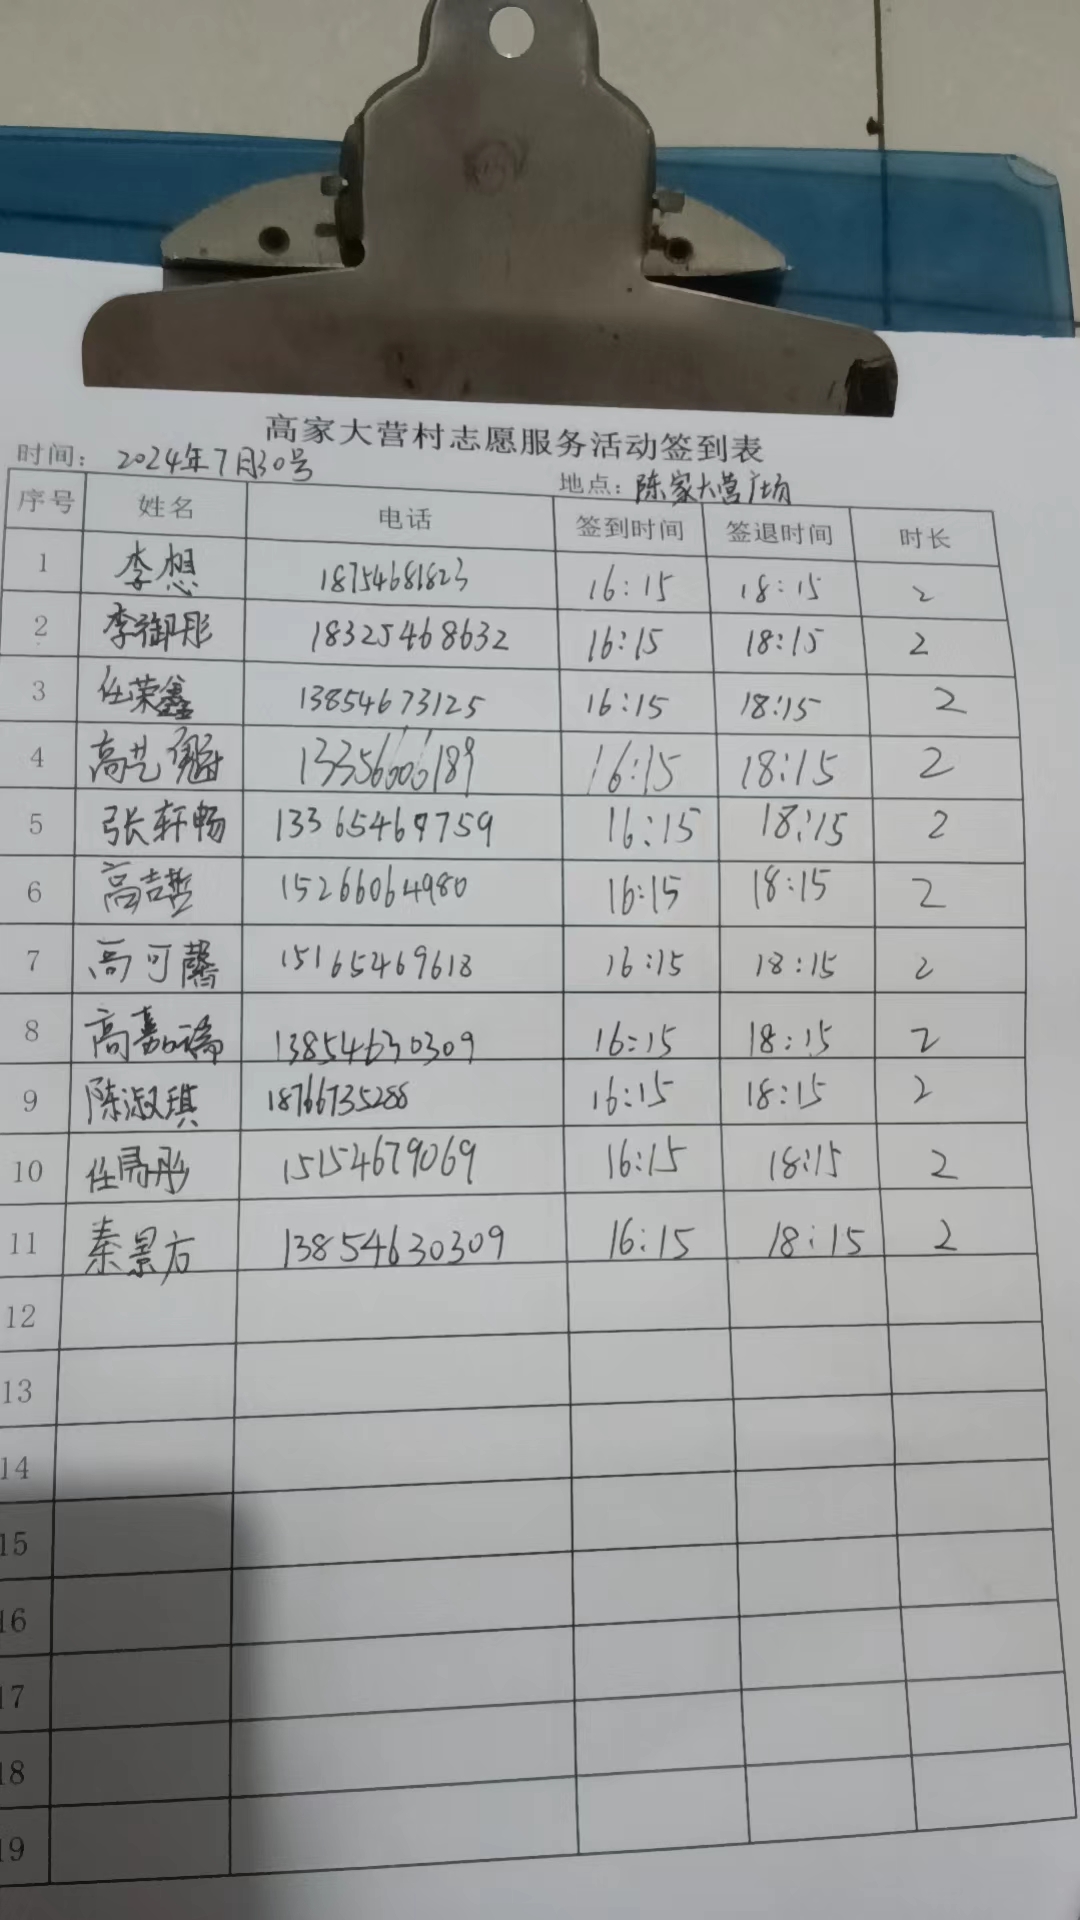 高家大营村志愿服务活动签到表
时间: 2024年7月30号 地点: 陈家大营广场
序号 姓名 电话 签到时间 签退时间 时长
1 李想 18754681823 16:15 18:15 2
2 李御彤 18325468632 16:15 18:15 2
3 任荣鑫 13854673125 16:15 18:15 2
4 高艺 13356606189 16:15 18:15 2
5 张轩畅 13365467759 16:15 18:15 2
6 高吉哲 15266064980 16:15 18:15 2
7 高可馨 15165469618 16:15 18:15 2
8 高嘉瑞 13854630309 16:15 18:15 2
9 陈淑琪 18766735288 16:15 18:15 2
10 任 15154679069 16:15 18:15 2
11 秦景方 13854630309 16:15 18:15 2
12
13
14
15
16
17
18
19